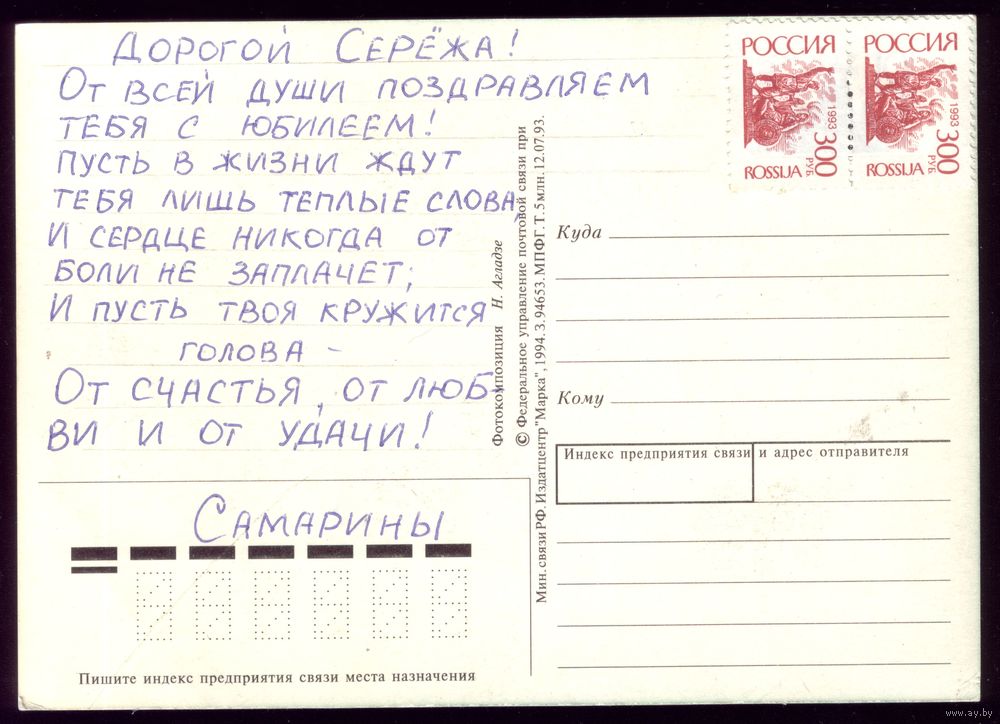 Дорогой Серёжа!
От всей души поздравляем
тебя с юбилеем!
пусть в жизни ждут
тебя лишь теплые слова,
и сердце никогда от
боли не заплачет;
и пусть твоя кружится
голова –
От счастья, от люб-
ви и от удачи!
Самарины
Пишите индекс предприятия связи места назначения
Фотокомпозиция Н. Агладзе
© Федеральное управление почтовой связи при
Мин. связи РФ. Издатцентр "Марка", 1994. З. 94653. МПФГ. Т. 5 млн. 12.07.93.
РОССИЯ
1993
300
РУБ
ROSSIJA
РОССИЯ
1993
300
РУБ
ROSSIJA
Куда
Кому
Индекс предприятия связи и адрес отправителя
www.ay.by